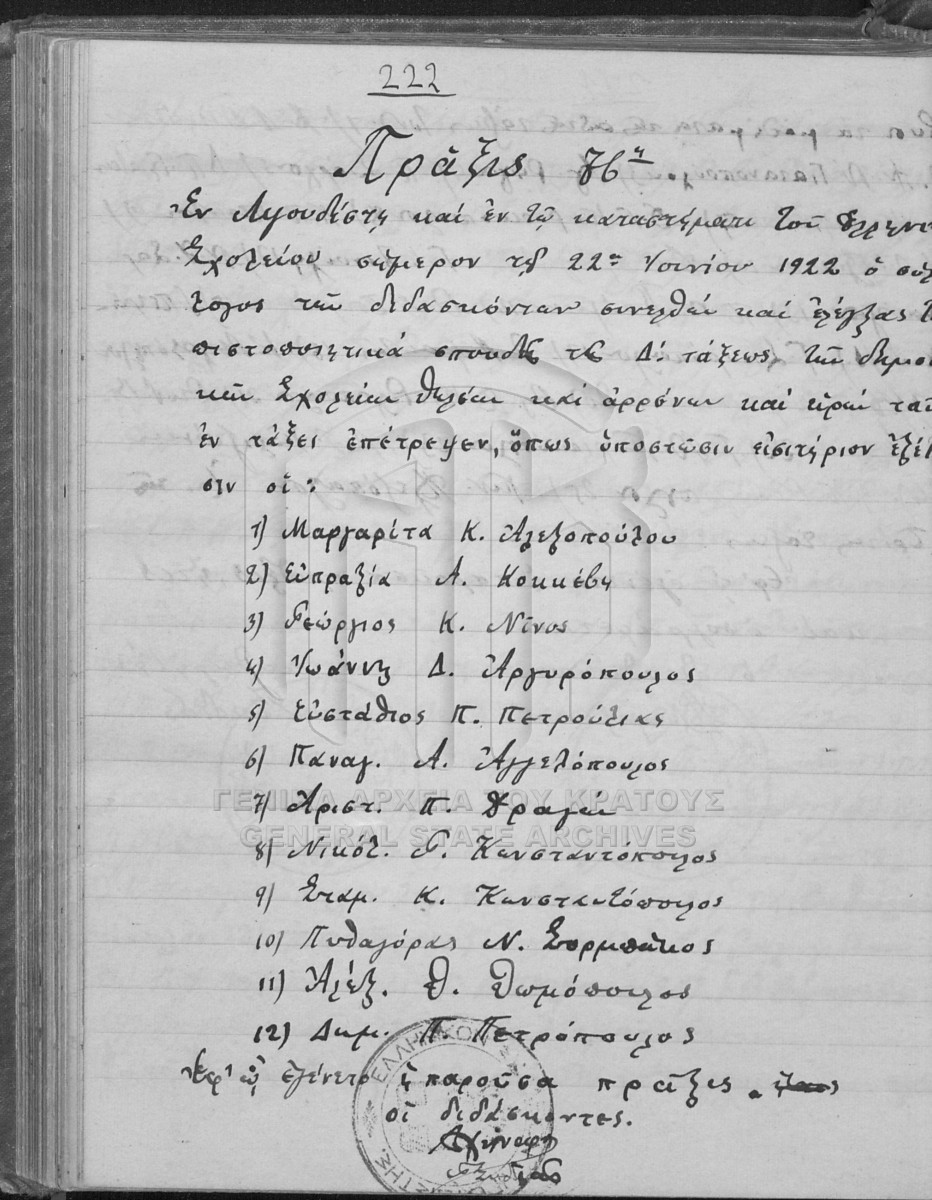 222
Πράξις 76η
Ἐν Λιγουδίστῃ καί ἐν τῷ καταστήματι τοῦ Ἑλληνι
Σχολείου σήμερον τῇ 22ᾳ Ἰουνίου 1922 ὁ σύλ
λογος τῶν διδασκόντων συνελθών καί ἐλέγξας τ
πιστοποιητικά σπουδῆς τῆς Δ΄. τάξεως τῶν δημο
κῶν Σχολείων θηλέων καί ἀρρένων καί εὑρών ταῦ
ἐν τάξει ἐπέτρεψεν, ὅπως ὑποστῶσιν εἰσιτήριον ἐξέ
σιν οἱ:
1) Μαργαρίτα Κ. Ἀλεξοπούλου
2) Εὐπραξία Α. Κοκκέβη
3) Γεώργιος Κ. Νῖνος
4) Ἰωάννης Δ. Ἀργυρόπουλος
5) Εὐστάθιος Π. Πετρούλιας
6) Παναγ. Α. Ἀγγελόπουλος
7) Ἀριστ. Π. Δραγών
8) Νικόλ. Γ. Κωνσταντόπουλος
9) Σταμ. Κ. Κωνσταντόπουλος
10) Πυθαγόρας Ν. Σορμπᾶκος
11) Ἀλέξ. Θ. Θωμόπουλος
12) Δημ. Π. Πετρόπουλος
Ἐφ' ᾧ ἐγένετο ἡ παροῦσα πρᾶξις.
οἱ διδάσκοντες.
ΓΕΝΙΚΑ ΑΡΧΕΙΑ ΤΟΥ ΚΡΑΤΟΥΣ
GENERAL STATE ARCHIVES